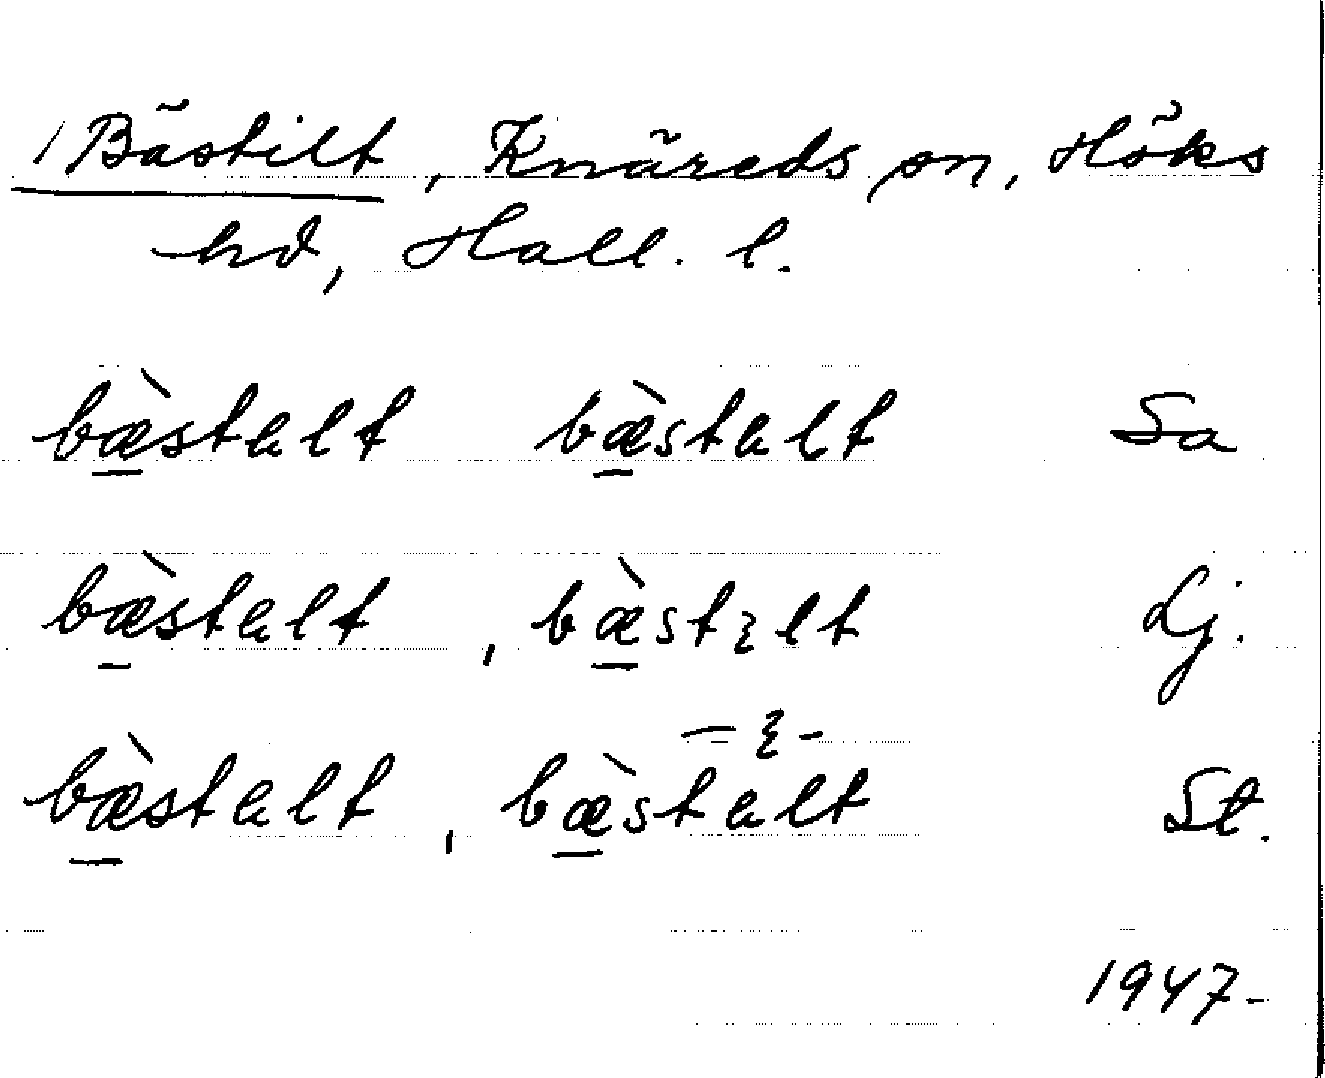 / Bästilt, Knäreds sn, Höks
hd, Hall. l.
bæ̠̀stalt bæ̠̀stalt Sa
bæ̠̀stalt, bæ̠̀stɛlt Lj.
– ɛ -
bæ̠̀stalt, bæ̠̀stalt St.
1947-